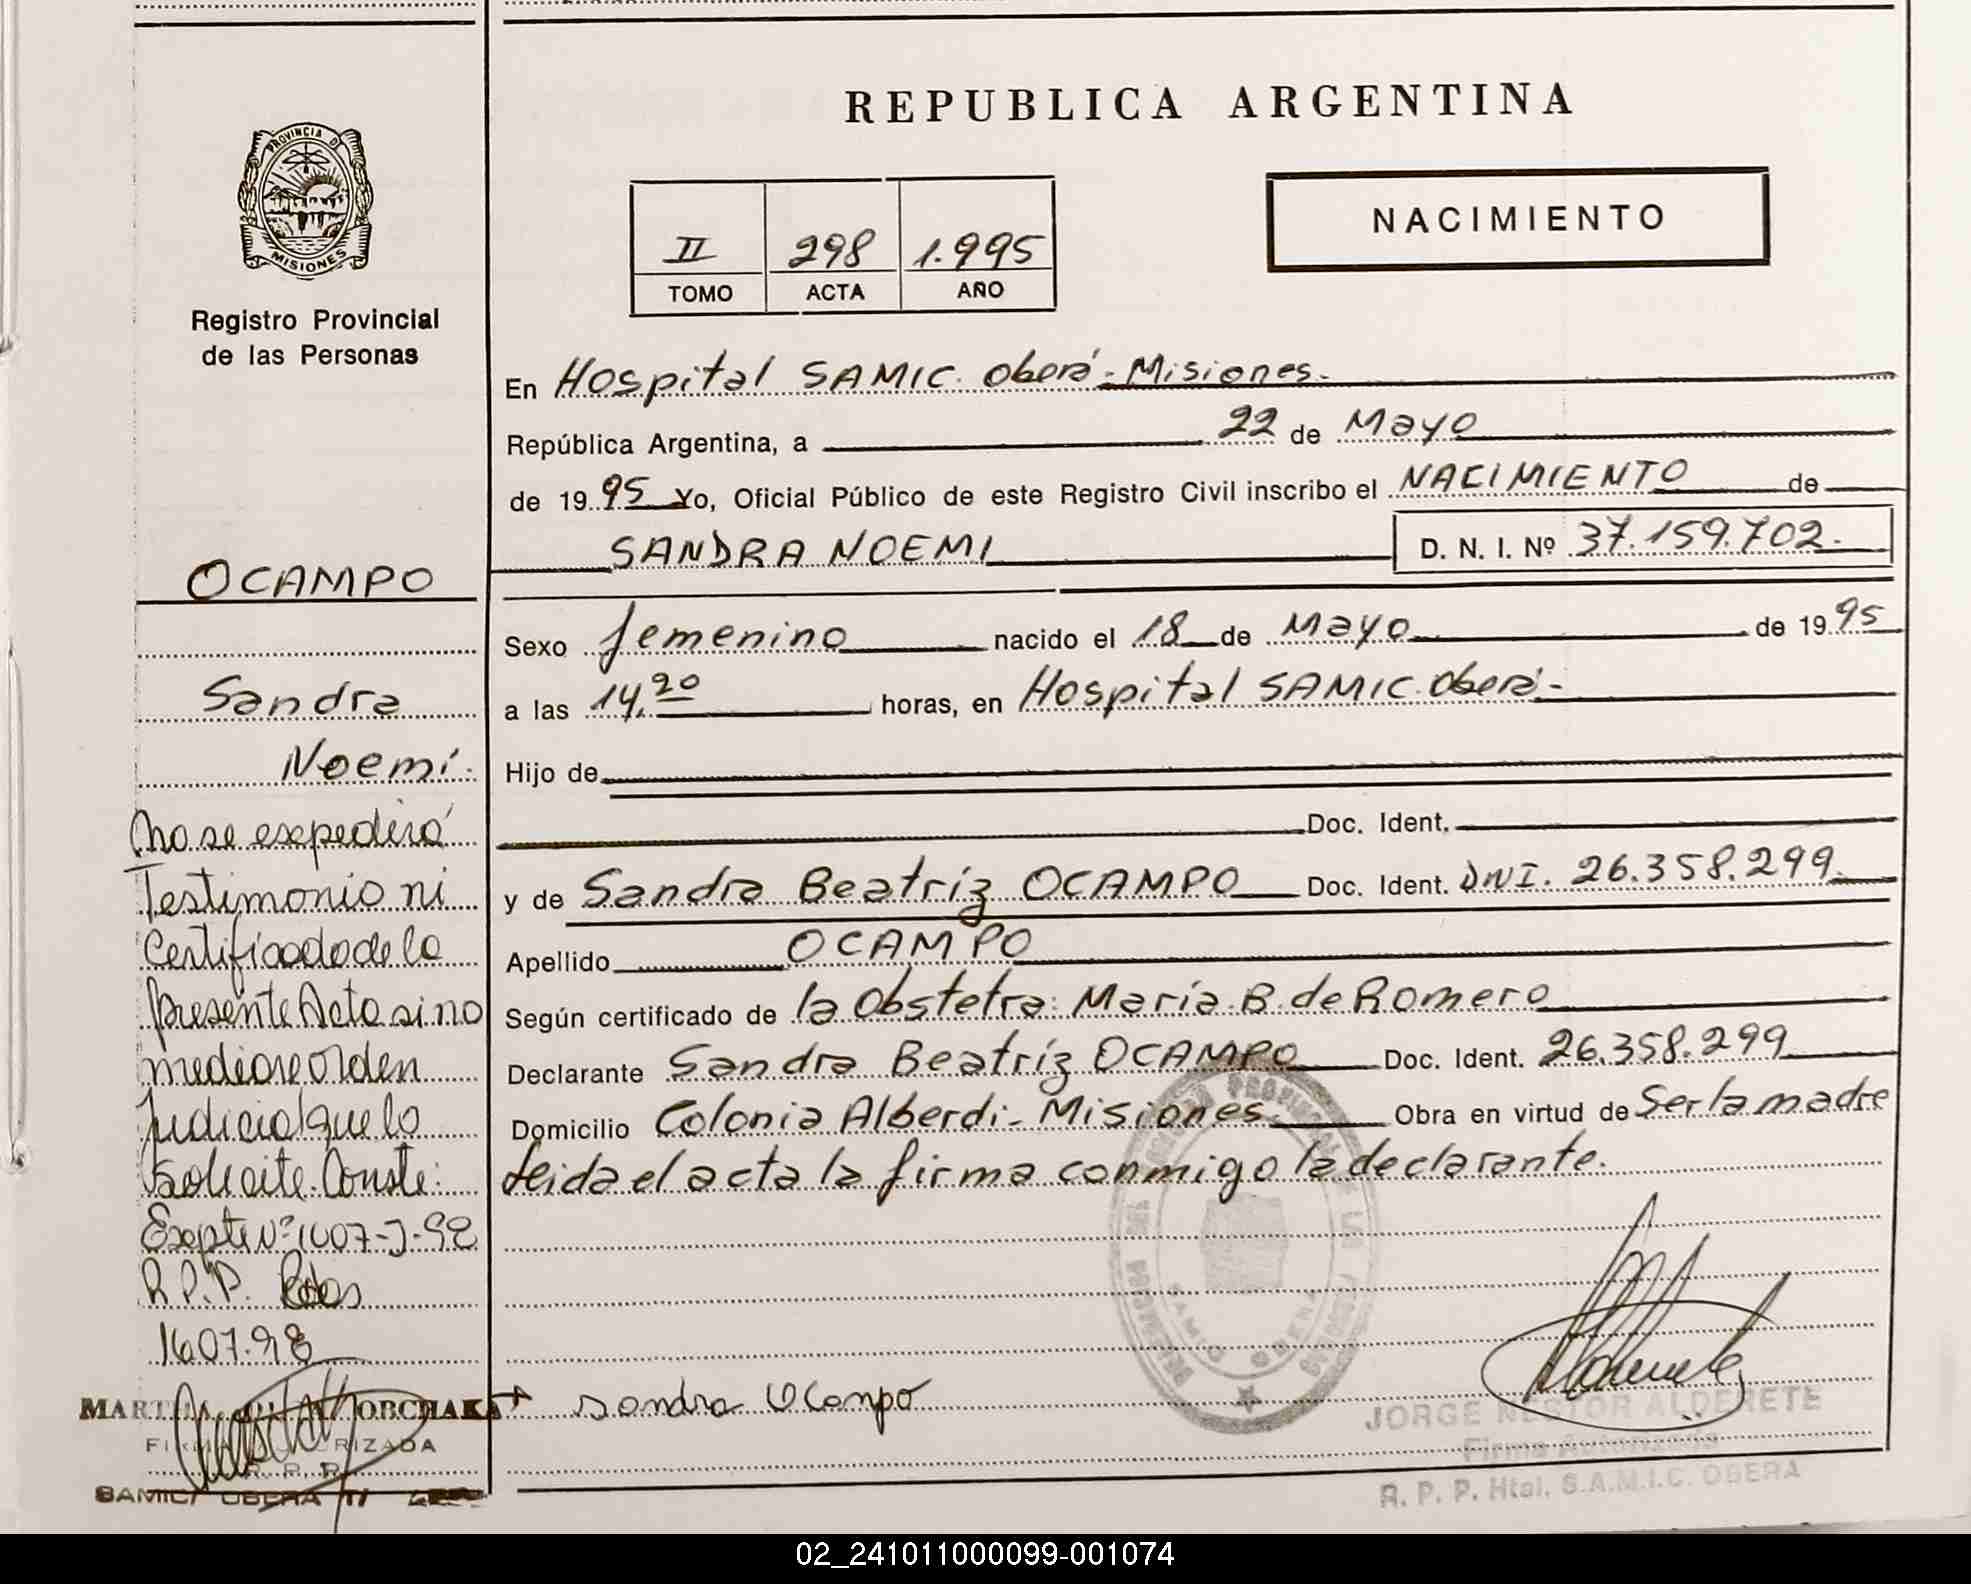 REPUBLICA ARGENTINA
PROVINCIA DE
MISIONES
Registro Provincial
de las Personas
II 298 1.995
TOMO ACTA AÑO
NACIMIENTO
En Hospital SAMIC. Oberá - Misiones.
República Argentina, a 22 de Mayo
de 1995 Yo, Oficial Público de este Registro Civil inscribo el NACIMIENTO de
SANDRA NOEMI D. N. I. Nº 37.159.702.
Sexo femenino nacido el 18 de Mayo de 1995
a las 14,20 horas, en Hospital SAMIC. Oberá -
Hijo de
Doc. Ident.
y de Sandra Beatríz OCAMPO Doc. Ident. DNI. 26.358.299.
Apellido OCAMPO
Según certificado de la Obstetra: María B. de Romero
Declarante Sandra Beatríz OCAMPO Doc. Ident. 26.358.299
Domicilio Colonia Alberdi - Misiones. Obra en virtud de Ser la madre
leida el acta la firma conmigo la declarante.
Sandra Ocampo
JORGE NESTOR ALDERETE
Firma Autorizada
R. P. P. Htal. S.A.M.I.C. OBERA
OCAMPO
Sandra
Noemí.
No se expedirá
Testimonio ni
Certificado de la
presente Acta si no
mediare orden
Judicial que lo
solicite. Conste:
Expte Nº 1007-J-98
R.P.P. Pdas
16.07.98
FIRMA AUTORIZADA
R. P. P.
SAMIC OBERA
02_241011000099-001074